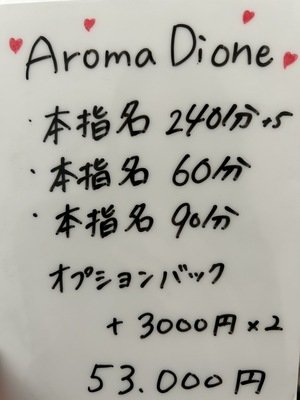 Aroma Dione
・本指名 240分+5
・本指名 60分
・本指名 90分
オプションバック
+3000円×2
53.000円